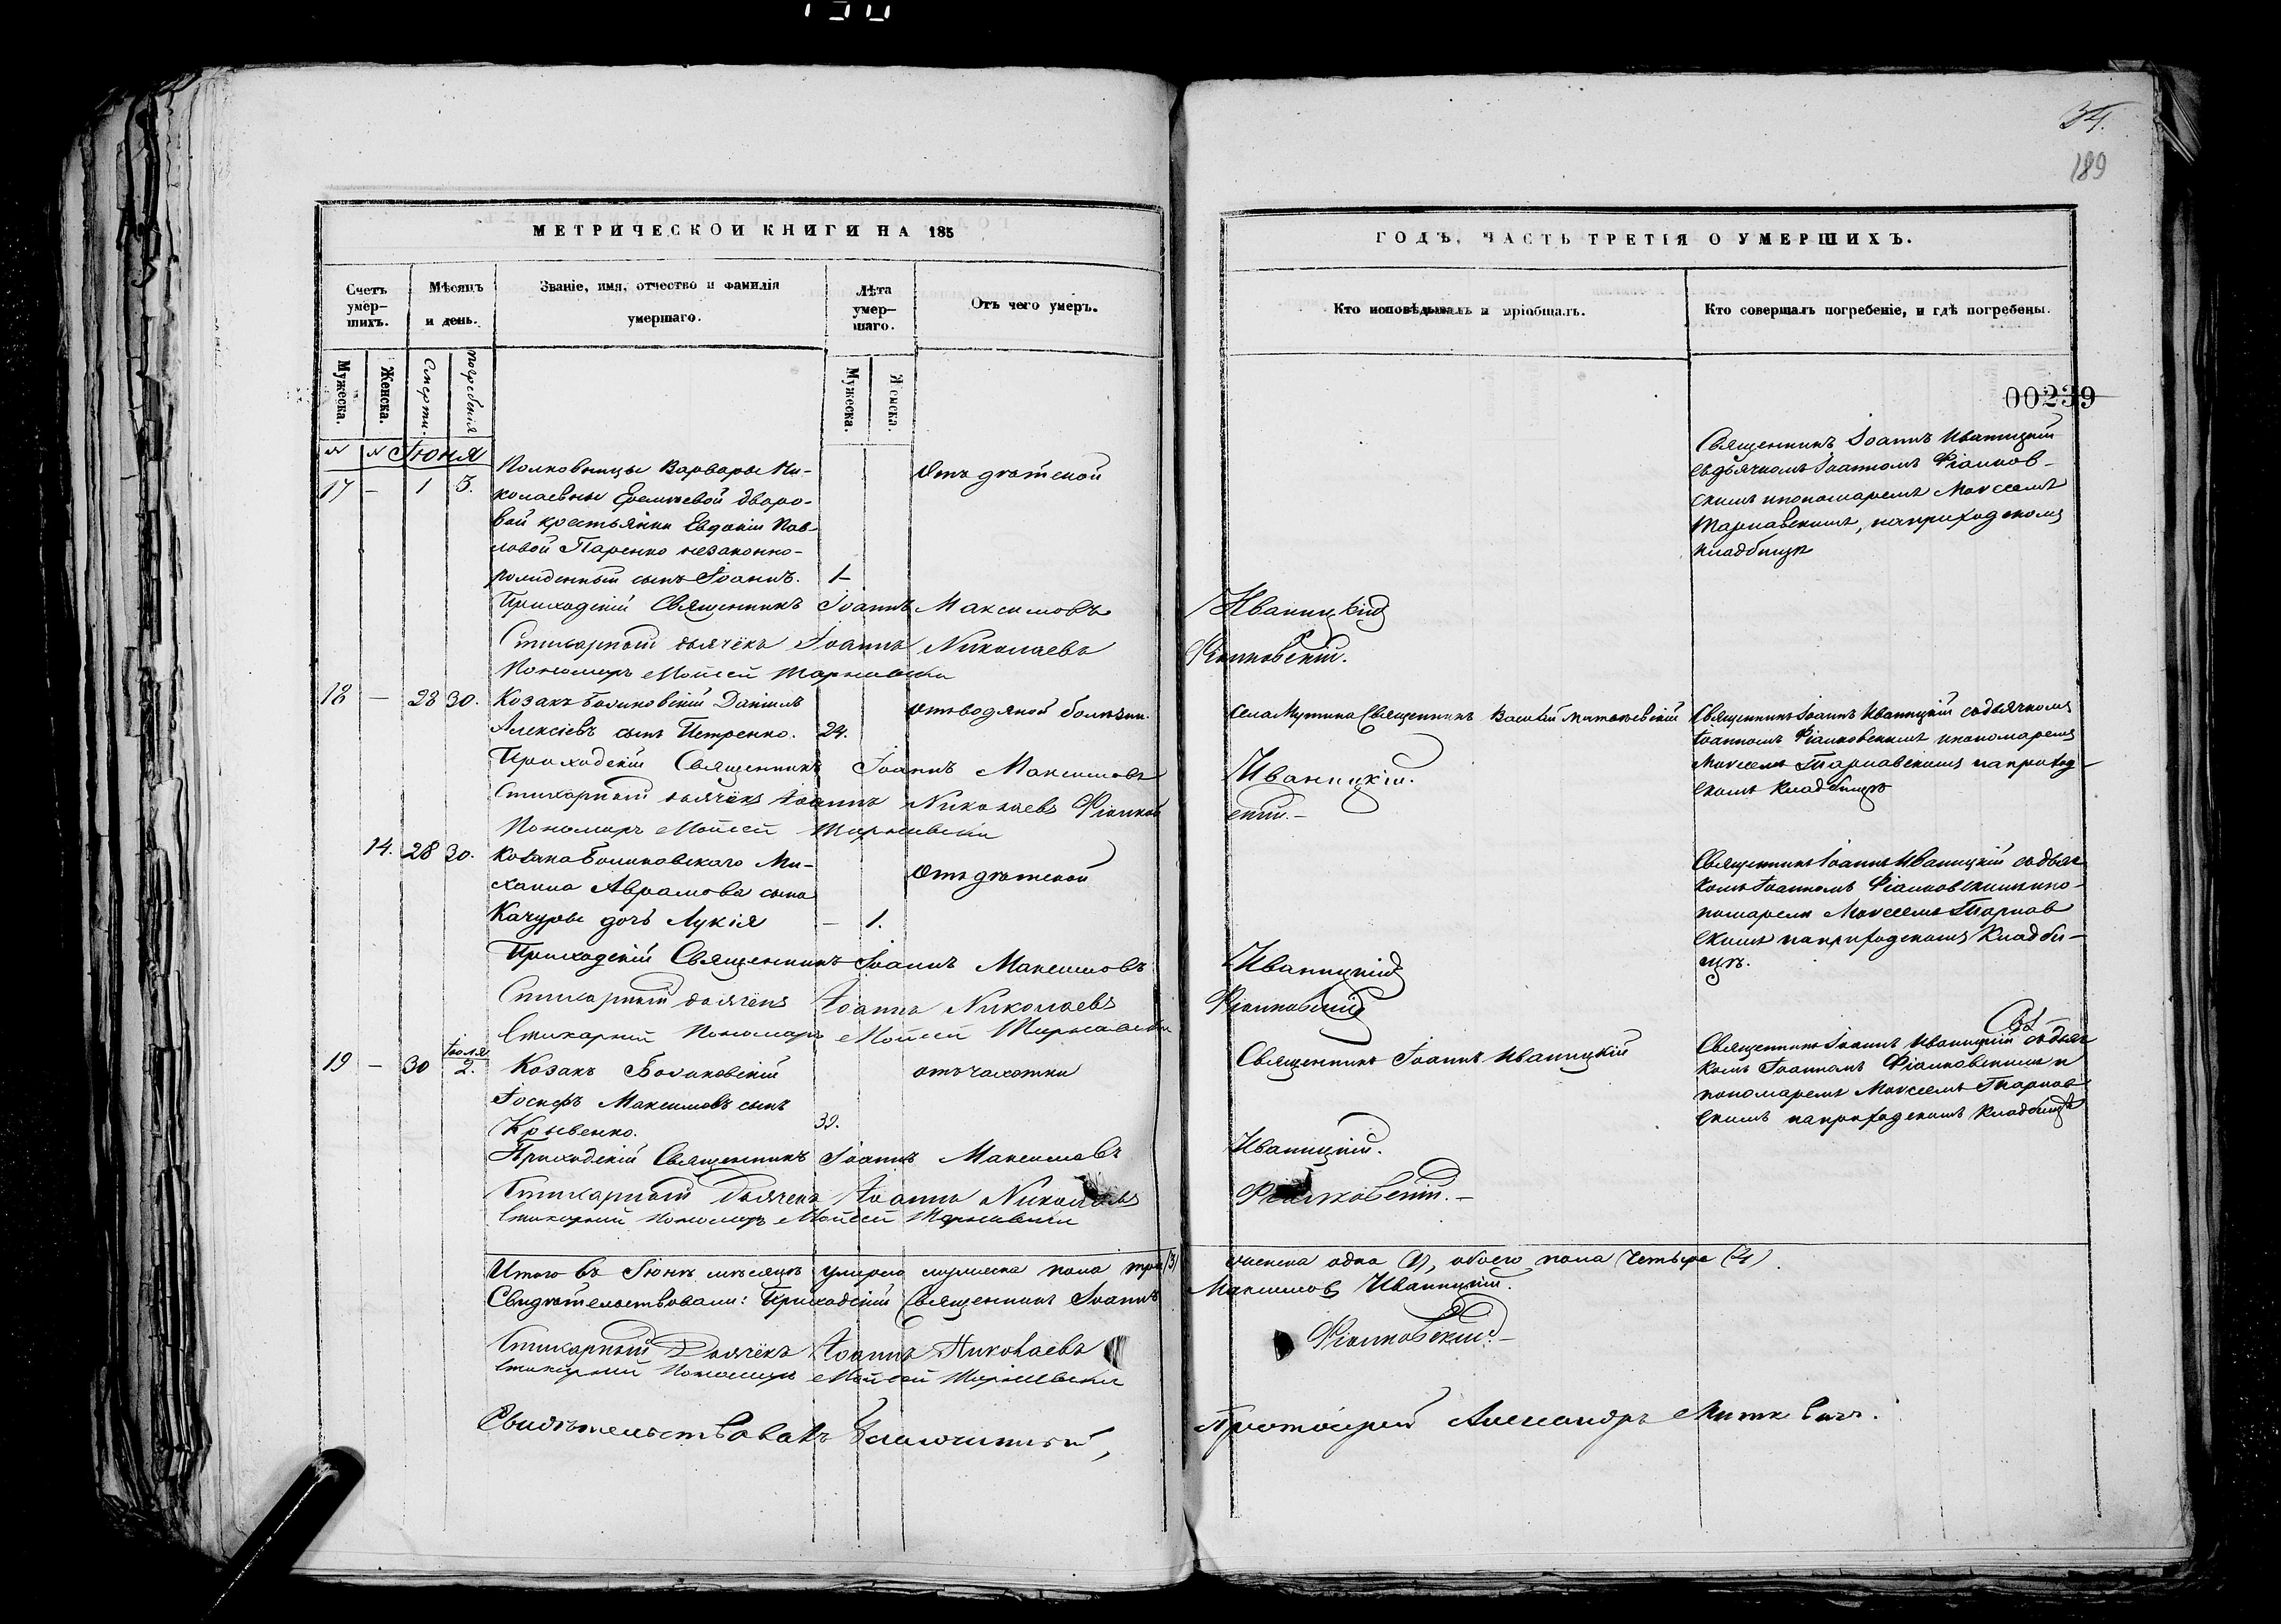 34.
189
МЕТРИЧЕСКОЙ КНИГИ НА 185
Счетъ умер-
шихъ.
Мѣсяцъ
и день.
Званіе, имя, отчество и фамилія
умершаго.
Лѣта
умер-
шаго.
Отъ чего умеръ.
Мужеска.
Женска.
Смерти.
погребенія
Мужеска.
Женска.
№ № Іюня
17 – 1 3.
Полковницы Варвары Ни-
колаевны Еремѣевой дворо-
вой крестьянки Евдокіи Пав-
ловой Паренко незаконно-
рожденный сынъ Іоаннъ. 1
Отъ дѣтской
Приходскій Священникъ Іоаннъ Максимовъ
Стихарный дьячекъ Іоаннъ Николаевъ
Пономарь Мойсей Тарнавскій
18 – 28 30.
Козакъ Боликовскій Даніилъ
Алексіевъ сынъ Петренко. 24.
отъ водяной болѣзни.
Приходскій Священникъ Іоаннъ Максимовъ
Стихарный дьячекъ Іоаннъ Николаевъ Фіалков
Пономарь Мойсей Тарнавскій
14. 28 30.
Козака Боликовскаго Ми-
хаила Аврамова сына
Качуры дочь Лукія – 1.
Отъ дѣтской
Приходскій Священникъ Іоаннъ Максимовъ
Стихарный дьячекъ Іоаннъ Николаевъ
Стихарный Пономарь Мойсей Тарнавскій
19 – 30 Іюля 2.
Козакъ Боликовскій
Іосифъ Максимовъ сынъ
Крывенко. 39.
отъ чахотки
Приходскій Священникъ Іоаннъ Максимовъ
Стихарный дьячекъ Іоаннъ Николаевъ
Стихарный Пономарь Мойсей Тарнавскій
Итого въ Іюнѣ мѣсяцѣ умерло мужеска пола три (3)
Свидѣтельствовали: Приходскій Священникъ Іоаннъ
Стихарный Дьячекъ Іоаннъ Николаевъ
Стихарный Пономарь Мойсей Тарнавскій
Свидѣтельствовалъ Благочинный,
ГОДЪ, ЧАСТЬ ТРЕТІЯ О УМЕРШИХЪ.
Кто исповѣдывалъ и пріобщалъ.
Кто совершалъ погребеніе, и гдѣ погребены.
00239
Священникъ Іоаннъ Иваницкій
съ дьячкомъ Іоанномъ Фіалков-
скимъ и пономаремъ Моисеемъ
Тарнавскимъ, на приходскомъ
кладбищѣ
Иваницкій
Фіалковскій.
Села Мутина Священникъ Василій
Священникъ Іоаннъ Иваницкій съ дьячкомъ
Іоанномъ Фіалковскимъ и пономаремъ
Моисеемъ Тарнавскимъ на приход-
скомъ кладбищѣ
Иваницкій.
скій.–
Священникъ Іоаннъ Иваницкій съ дьяч
комъ Іоанномъ Фіалковскимъ и по-
номаремъ Моисеемъ Тарнав
скимъ на приходскомъ кладби-
щѣ.
Иваницкій
Фіалковскій
Священникъ Іоаннъ Иваницкій
Священникъ Іоаннъ Иваницкій съ дьяч
комъ Іоанномъ Фіалковскимъ и
пономаремъ Моисеемъ Тарнав
скимъ на приходскомъ кладбищѣ
Иваницкій.
Фіалковскій.–
женска одна (1), обоего пола четыре (4).
Максимовъ Иваницкій.
Фіалковскій.–
Протоіерей Александръ Миткевичъ.